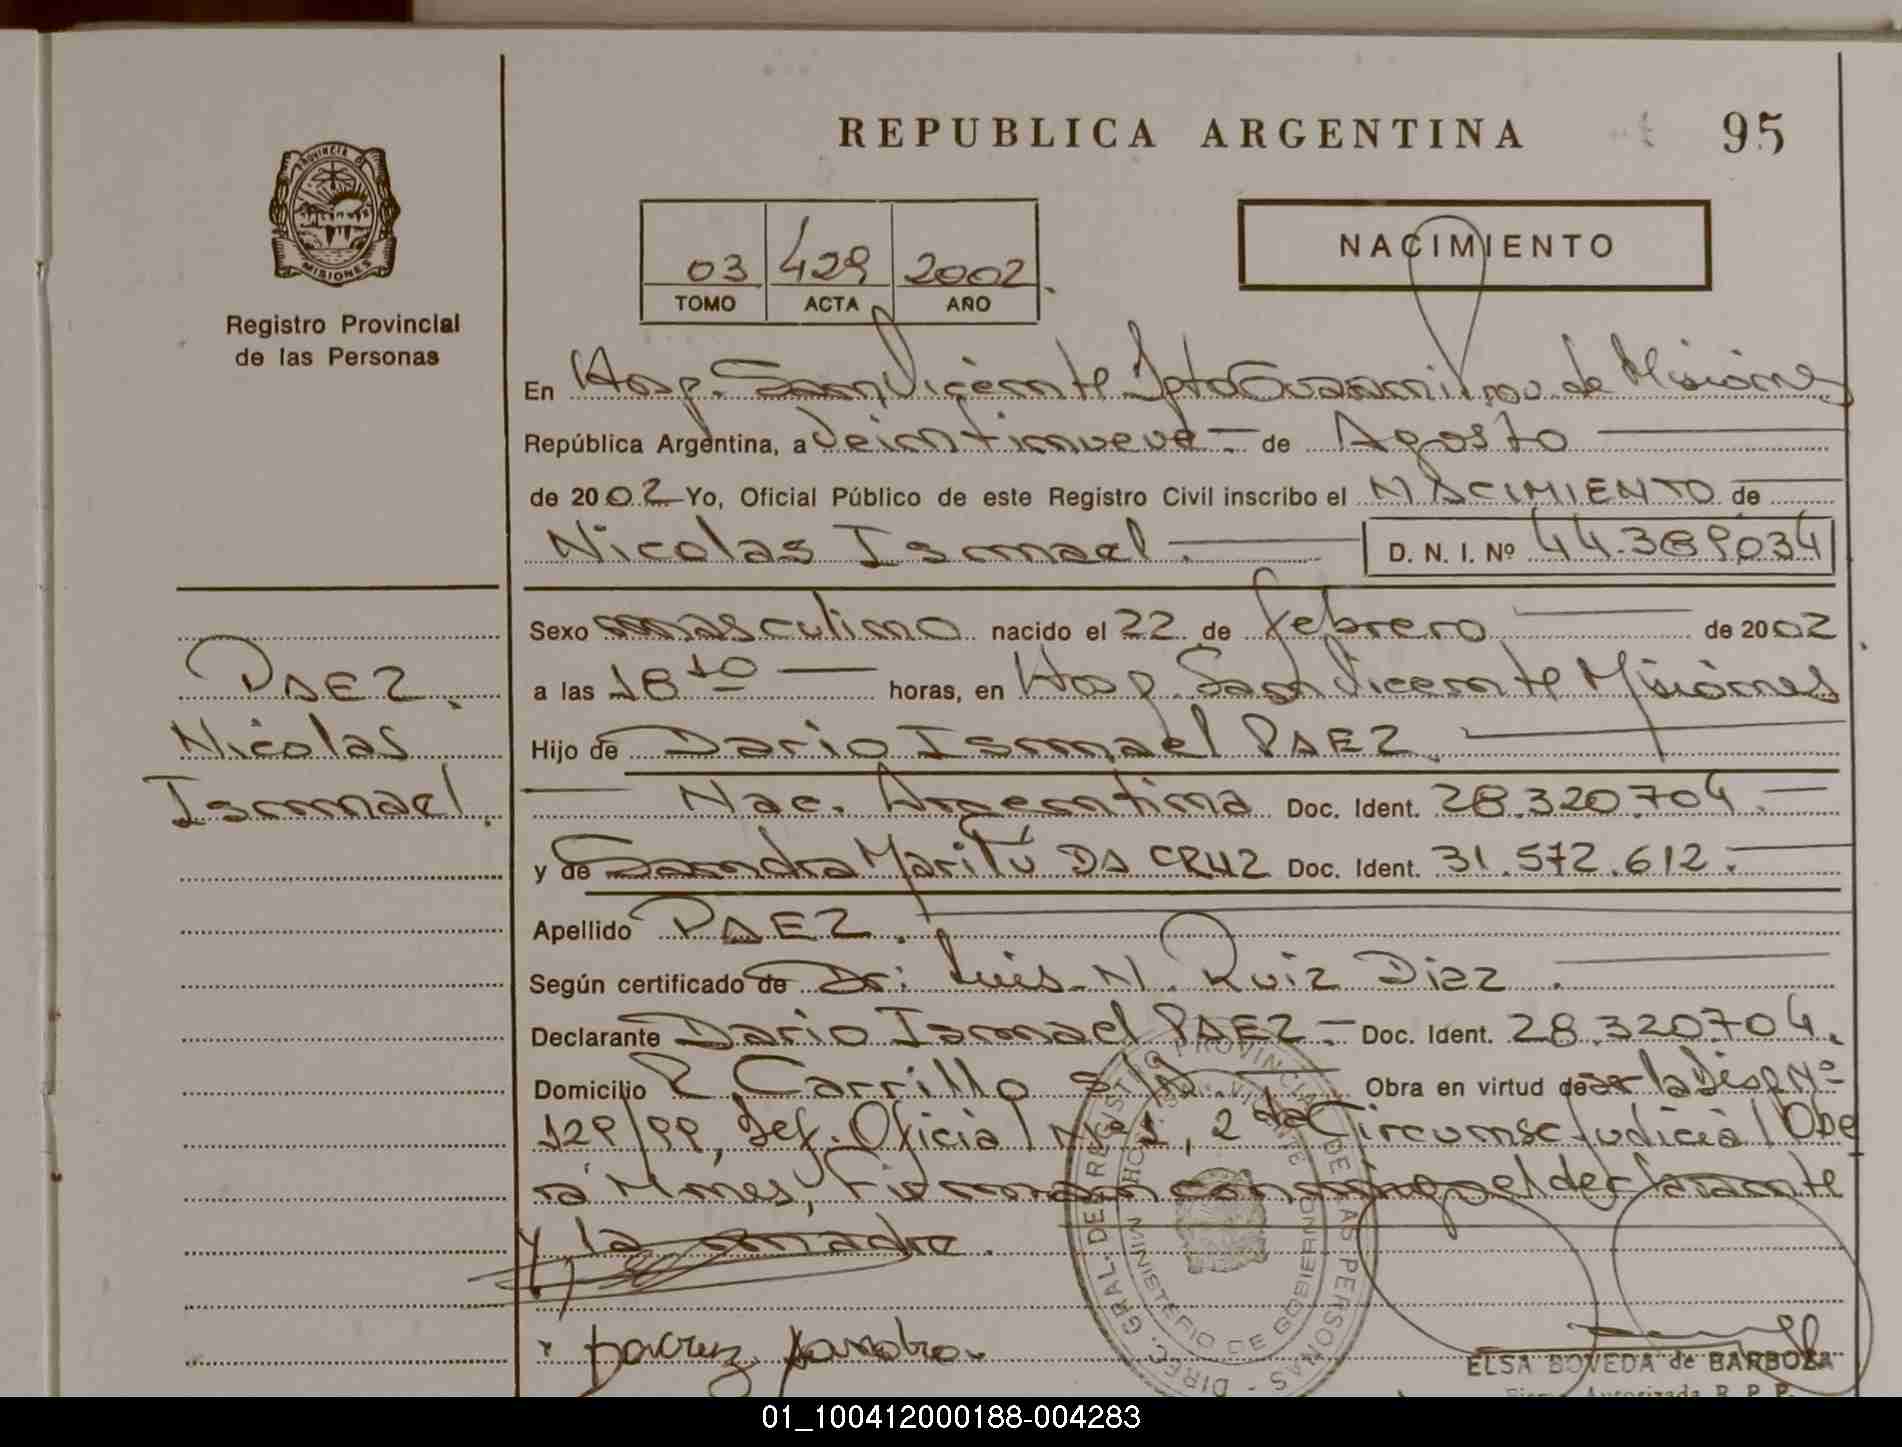 REPUBLICA ARGENTINA 95
PROVINCIA DE
MISIONES
Registro Provincial
de las Personas
03 429 2002
TOMO ACTA AÑO
NACIMIENTO
En Hosp. San Vicente Dpto Guarani Prov. de Misiones
República Argentina, a Veintinueve - de Agosto
de 2002 Yo, Oficial Público de este Registro Civil inscribo el NACIMIENTO de
Nicolas Ismael. D. N. I. Nº 44.389.034
Sexo masculino nacido el 22 de febrero de 2002
a las 18 10 horas, en Hosp. San Vicente Misiones
Hijo de Dario Ismael PAEZ.
Nac. Argentina Doc. Ident. 28.320.704.
y de Sandra Maritú DA CRUZ Doc. Ident. 31.572.612.
Apellido PAEZ.
Según certificado de Dr: Luis N. Ruiz Diaz.
Declarante Dario Ismael PAEZ - Doc. Ident. 28.320.704.
Domicilio R Carrillo S/N. Obra en virtud de a la Disp Nº
129/99, Def. Oficial Nº 1, 2da Circunsc Judicial Obe
rá Mnes, Firman conmigo el declarante
y la madre.
PAEZ.
Nicolas
Ismael.
Dacruz Sandra.
DIREC. GRAL. DE REGISTRO PROVINCIAL DE LAS PERSONAS
MINISTERIO DE GOBIERNO
ELSA BOVEDA de BARBOZA
Firma Autorizada R. P. P.
01_100412000188-004283